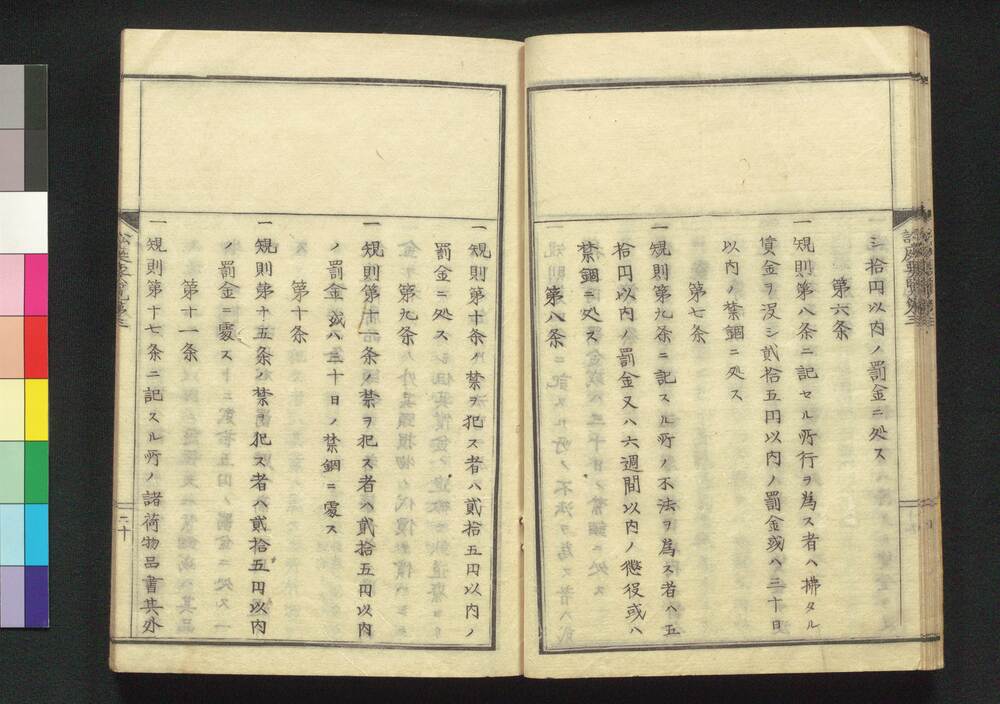 シ拾円以内ノ罰金ニ処ス
第六条
一規則第八条ニ記セル所行ヲ為ス者ハ拂タル
賃金ヲ没シ貳拾五円以内ノ罰金或ハ三十日
以内ノ禁錮ニ処ス
第七条
一規則第九条ニ記スル所ノ不法ヲ為ス者ハ五
拾円以内ノ罰金又ハ六週間以内ノ懲役或ハ
禁錮ニ処ス
第八条
一規則第十条ノ禁ヲ犯ス者ハ貳拾五円以内ノ
罰金ニ処ス
第九条
一規則第十一条ノ禁ヲ犯ス者ハ貳拾五円以内
ノ罰金或ハ三十日ノ禁錮ニ処ス
第十条
一規則第十五条ノ禁ヲ犯ス者ハ貳拾五円以内
ノ罰金ニ処ス
第十一条
一規則第十七条ニ記スル所ノ諸荷物品書其外
二十